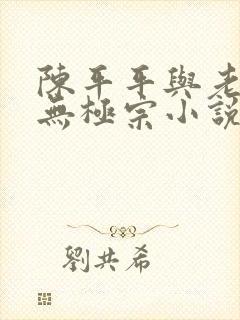 陳平平與老
無極宗小說
劉共希